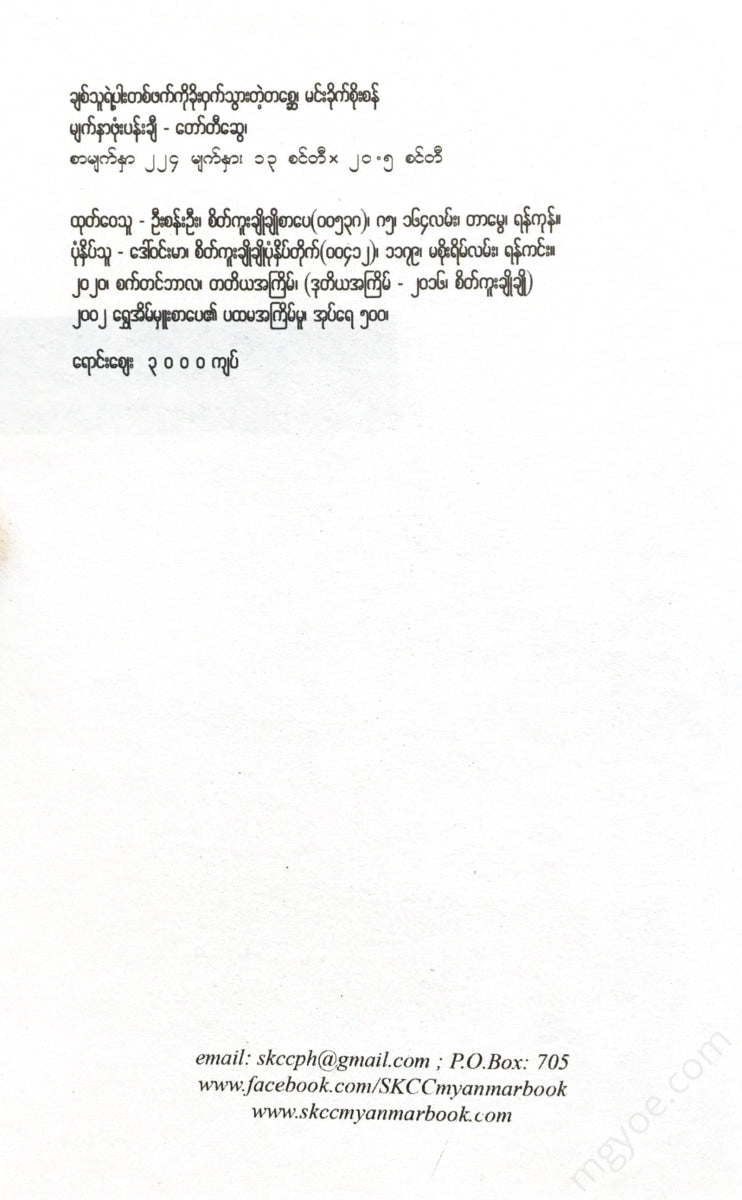 ချစ်သူရဲ့ပါးတစ်ဖက်ကိုခိုးဝှက်သွားတဲ့တစ္ဆေ၊ မင်းခိုက်စိုးစန်
မျက်နှာဖုံးပန်းချီ - တော်တီဆွေ၊
စာမျက်နှာ ၂၂၄ မျက်နှာ၊ ၁၃ စင်တီ× ၂၀.၅ စင်တီ
ထုတ်ဝေသူ - ဦးစန်းဦး၊ စိတ်ကူးချိုချိုစာပေ(၀၀၅၃၈)၊ ၈၅၊ ၁၆၄လမ်း၊ တာမွေ၊ ရန်ကုန်။
ပုံနှိပ်သူ - ဒေါ်ဝင်းမာ၊ စိတ်ကူးချိုချိုပုံနှိပ်တိုက်(၀၀၄၁၂)၊ ၁၁၇၉၊ မစိုးရိမ်လမ်း၊ ရန်ကင်း။
၂၀၂၀၊ စက်တင်ဘာလ၊ တတိယအကြိမ်၊ (ဒုတိယအကြိမ် - ၂၀၁၆၊ စိတ်ကူးချိုချို)
၂၀၀၂ ရွှေအိမ်မှူးစာပေ၏ ပထမအကြိမ်မူ၊ အုပ်ရေ ၅၀၀၊
ရောင်းဈေး ၃ ၀ ၀ ၀ ကျပ်
email: skccph@gmail.com ; P.O.Box: 705
www.facebook.com/SKCCmyanmarbook
www.skccmyanmarbook.com
mgyoe.com